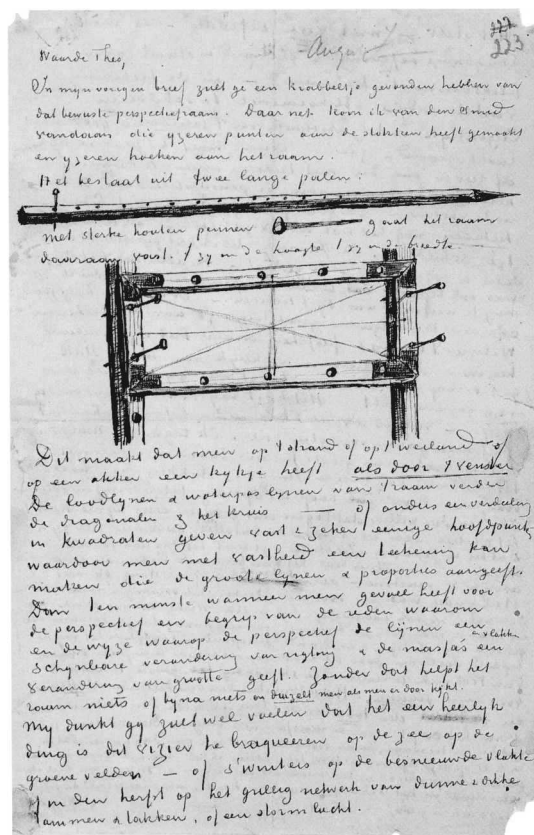 223
Waarde Theo,
In mijn vorigen brief zult ge een krabbeltje gevonden hebben van
dat bewuste perspectiefraam. Daar net kom ik van den smid
vandaan die yzeren punten aan de stokken heeft gemaakt
en yzeren hoeken aan het raam.
Het bestaat uit twee lange palen:
met sterke houten pennen gaat het raam
daaraan vast. 't zy in de hoogte 't zy in de breedte
Dit maakt dat men op 't strand of op 't weiland of
op een akker een kykje heeft als door 't venster
De loodlynen & waterpaslynen van 't raam verder
de diagonalen & het kruis — of anders een verdeeling
in kwadraten geven vast & zeker eenige hoofdpunten
waardoor men met vastheid een teekening kan
maken die de groote lynen & proporties aangeeft.
Dan ten minste wanneer men gevoel heeft voor
de perspectief en begrip van de reden waarom
en de wyze waarop de perspectief de lijnen een
schynbare verandering van rigting & de massa's en vlakken een
verandering van grootte geeft. Zonder dat helpt het
raam niets of byna niets en duizelt men als men er door kykt.
My dunkt gy zult wel voelen dat het een heerlyk
ding is dit vizier te braqueeren op de zee op de
groene velden — of s'winters op de besneeuwde vlakte
of in den herfst op het grillig netwerk van dunne & dikke
stammen & takken, of een stormlucht.